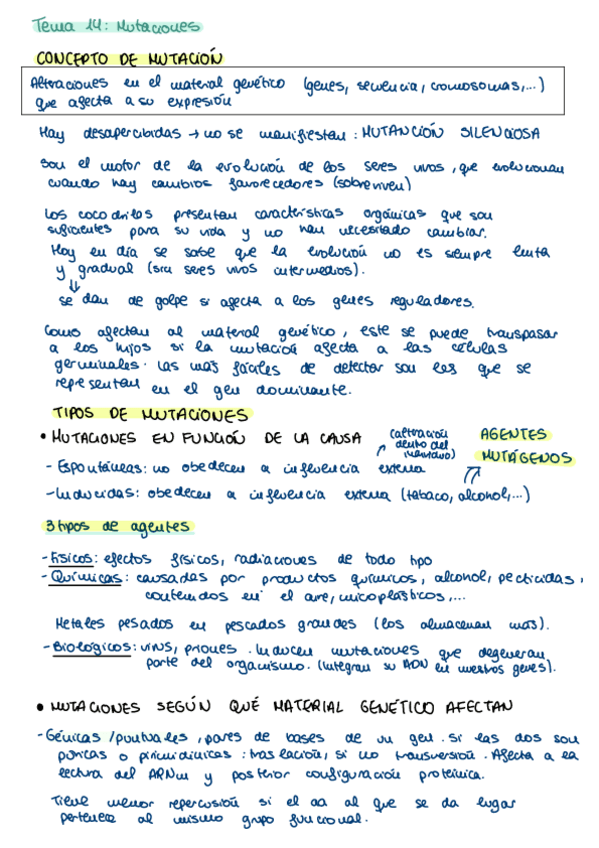 Tema 14: Mutaciones
CONCEPTO DE MUTACIÓN
Alteraciones en el material genético (genes, secuencia, cromosomas,...)
que afecta a su expresión
Hay desapercibidas → no se manifiestan: MUTANCIÓN SILENCIOSA
Son el motor de la evolución de los seres vivos, que evolucionan
cuando hay cambios favorecedores (sobreviven)
Los cocodrilos presentan características orgánicas que son
suficientes para su vida y no han necesitado cambiar.
Hoy en día se sabe que la evolución no es siempre lenta
y gradual (sin seres vivos intermedios).
⇓
se dan de golpe si afecta a los genes reguladores.
Como afectan al material genético, este se puede transpasar
a los hijos si la mutación afecta a las células
germinales. Las más fáciles de detectar son las que se
representan en el gen dominante.
TIPOS DE MUTACIONES
• MUTACIONES EN FUNCIÓN DE LA CAUSA (alteración dentro del individuo) AGENTES MUTÁGENOS
- Espontáneas: no obedecen a influencia externa
- Inducidas: obedecen a influencia externa (tabaco, alcohol,...)
3 tipos de agentes
- Físicos: efectos físicos, radiaciones de todo tipo
- Químicas: causadas por productos químicos, alcohol, pecticidas,
contenidos en el aire, microplásticos,...
Metales pesados en pescados grandes (los almacenan más).
- Biológicos: virus, priones. Inducen mutaciones que degeneran
parte del organismo. (Integran su ADN en nuestros genes).
• MUTACIONES SEGÚN QUÉ MATERIAL GENÉTICO AFECTAN
- Génicas / puntuales, pares de bases de un gen. Si las dos son
púricas o pirimidínicas: traslación, si no transversión. Afecta a la
lectura del ARNm y posterior configuración proteínica.
Tiene menor repercusión si el aa al que se da lugar
pertenece al mismo grupo funcional.